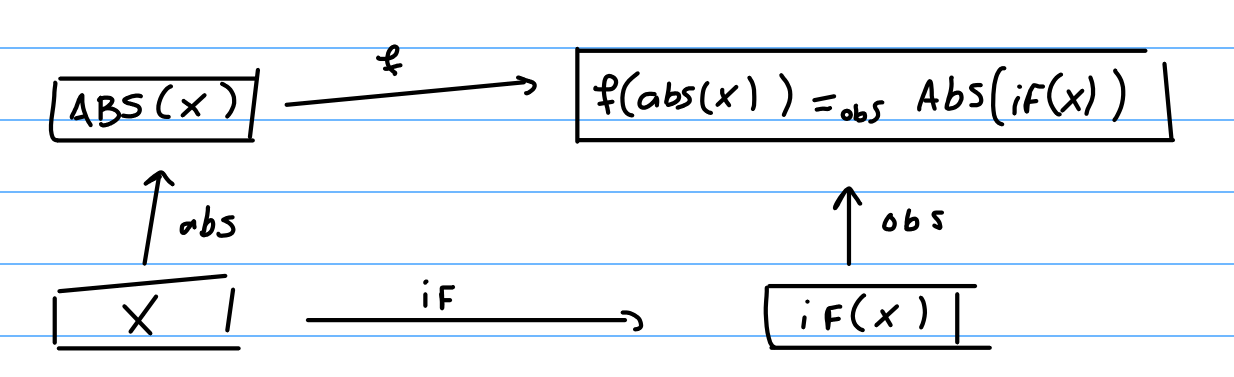 f
ABS(x)
f(abs(x)) =obs Abs(iF(x))
abs
obs
iF
X
iF(x)